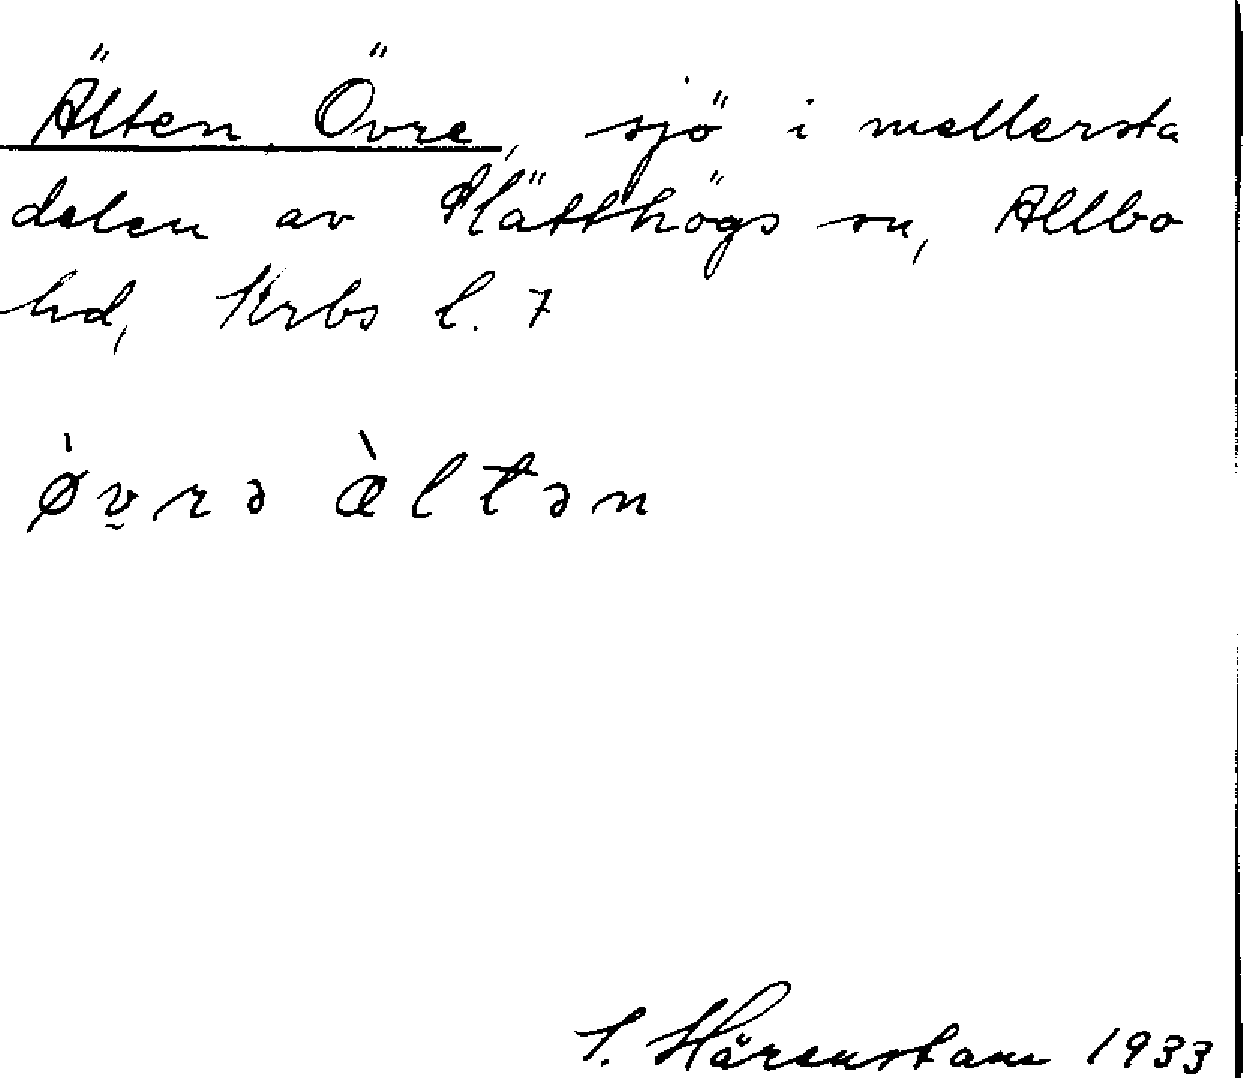 Älten, Övre, sjö i mellersta
delen av Slätthögs sn, Allbo
hd, Krbs l. 7
ø̀v̯rə æ̀ltən
S. Härenstam 1933